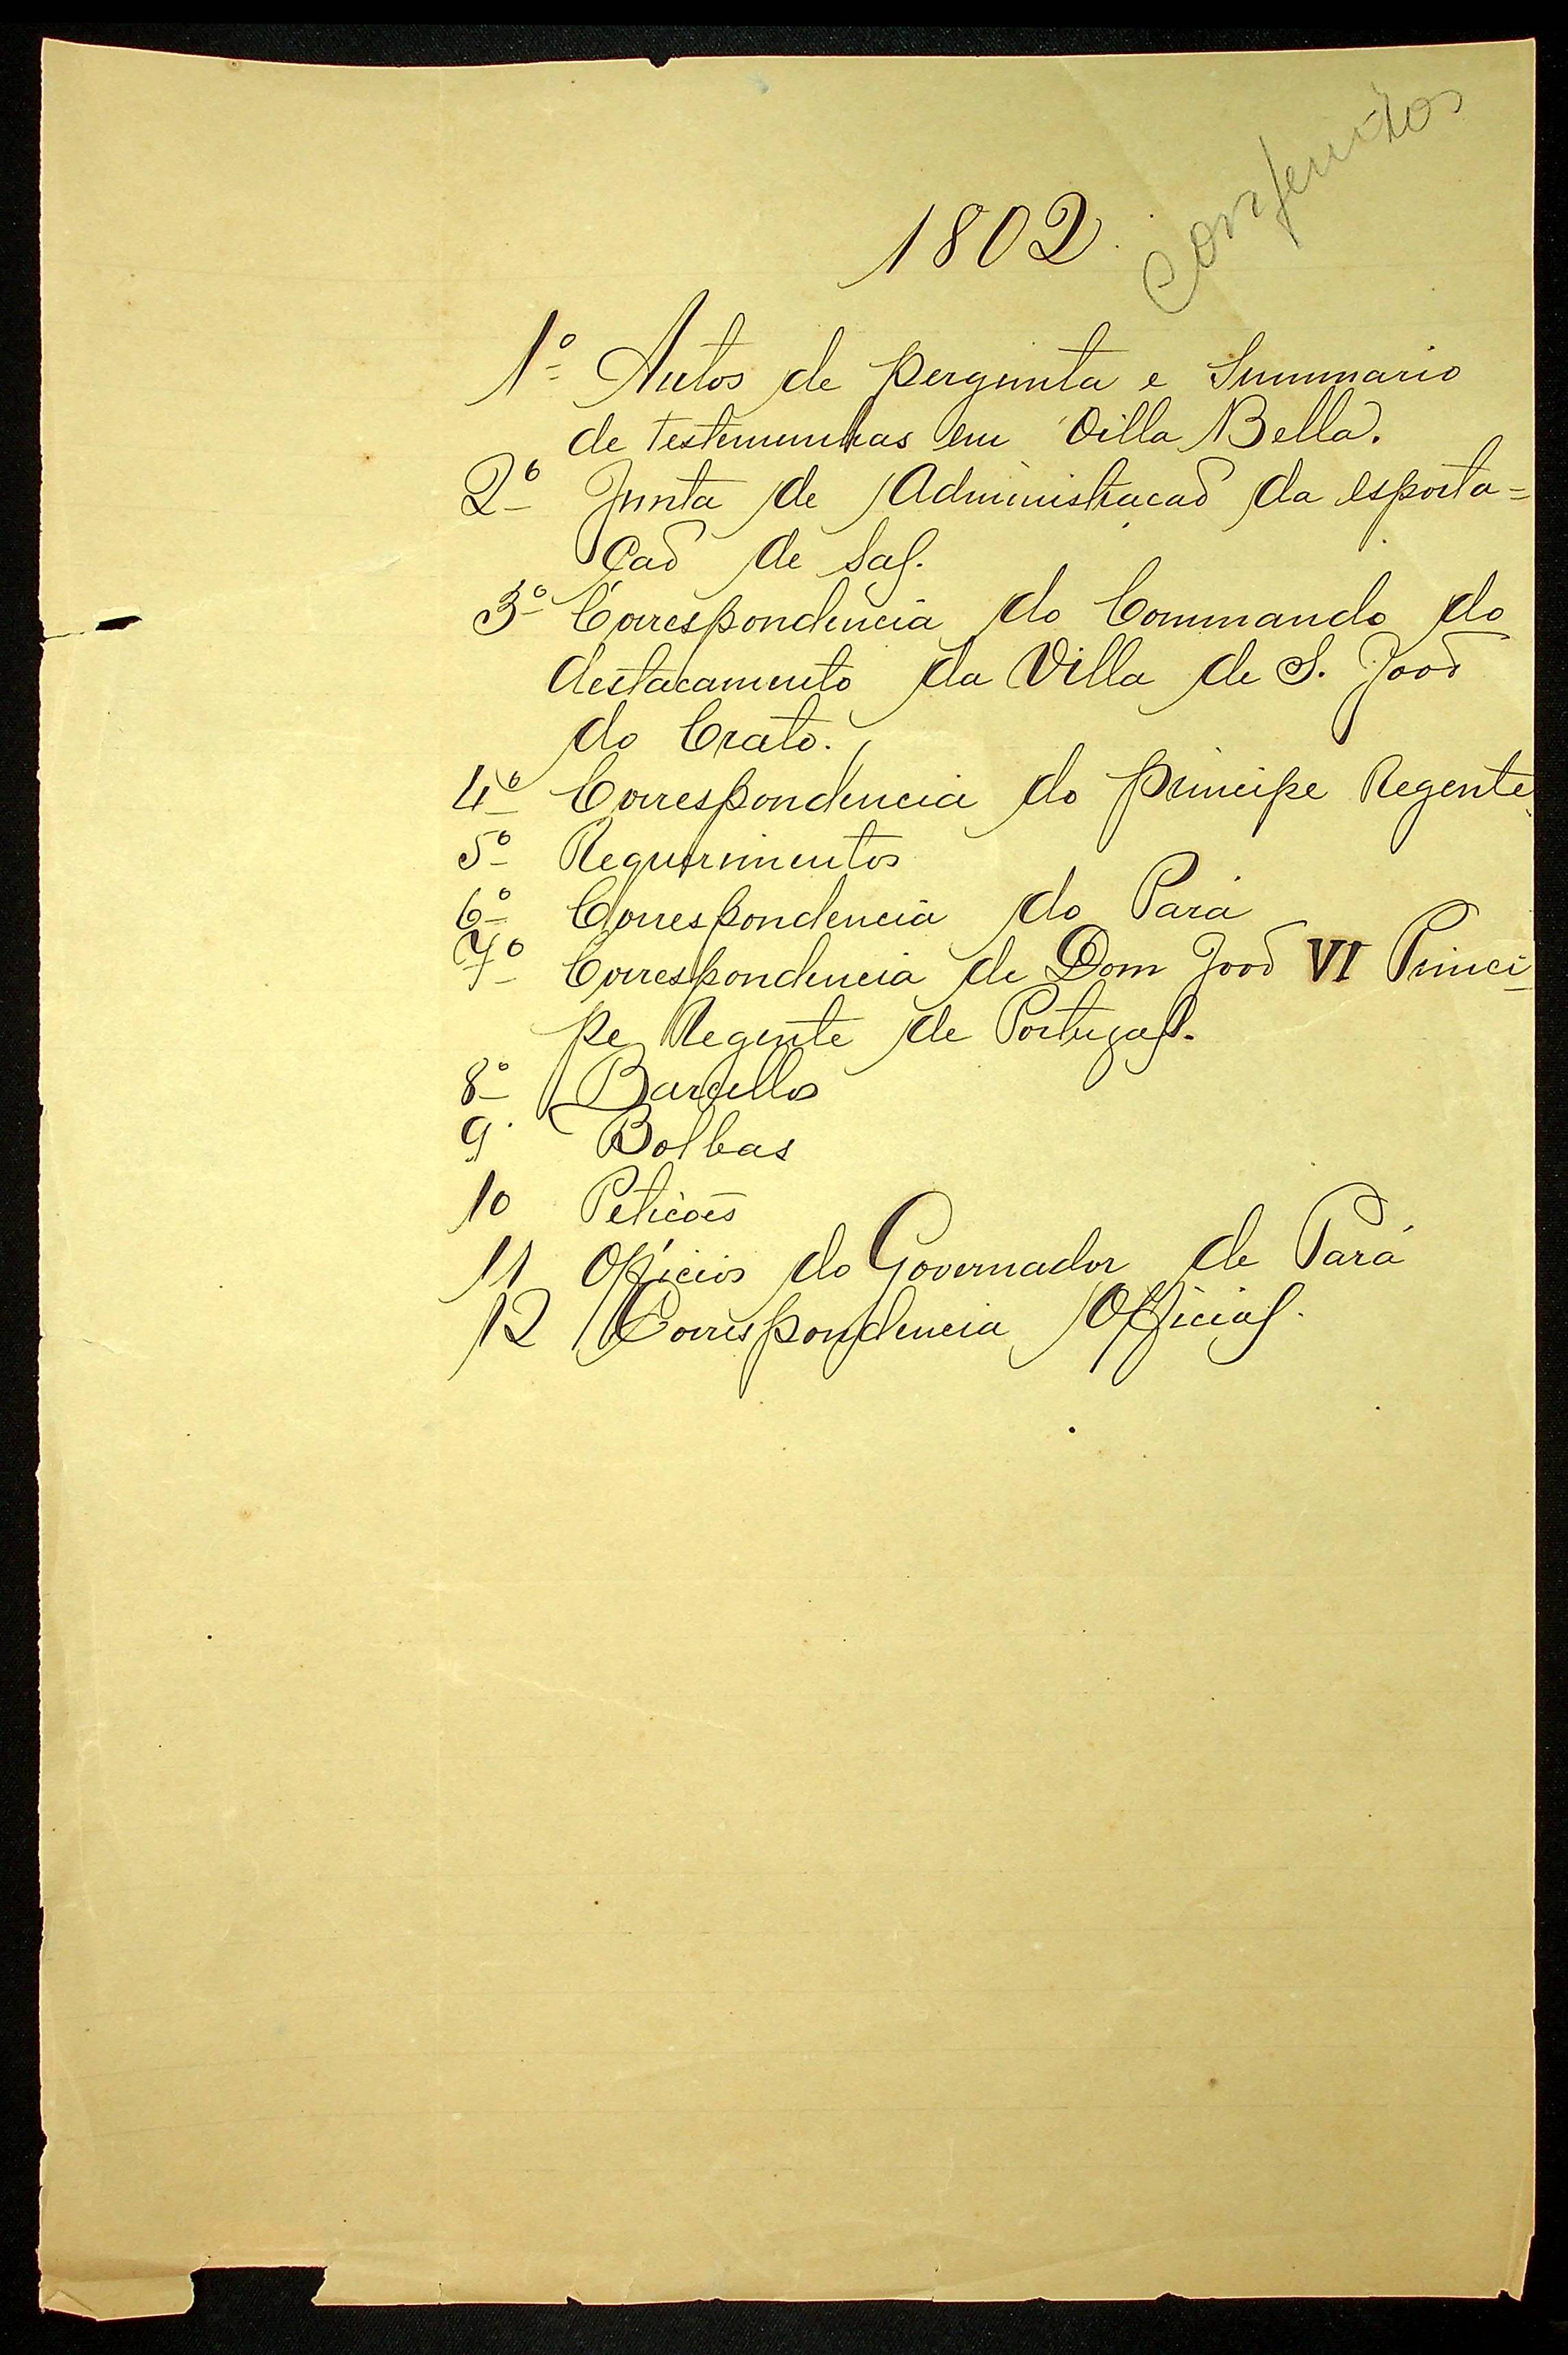 conferidos
1802.
1º Autos de pergunta e Summario
de testemunhas em Villa Bella.
2º Junta de Administracaõ da esporta=
çaõ de sal.
3º Correspondência do Commando do
destacamento da Villa de S. Joaõ
do Crato.
4º Correspondencia do principe Regente
5º Requerimentos
6º Correspondencia do Pará
7º Correspondencia de Dom Joaõ VI Princi
pe Regente de Portugal.
8º Barcellos
9º Borbas
10 Peticoẽs
11 Officios do Governador de Pará
12 Correspondencia Official.